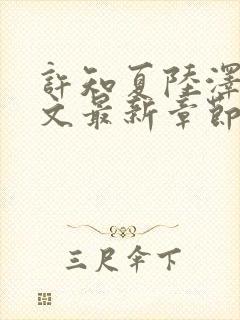 許知夏陸澤
文最新章節
三尺伞下